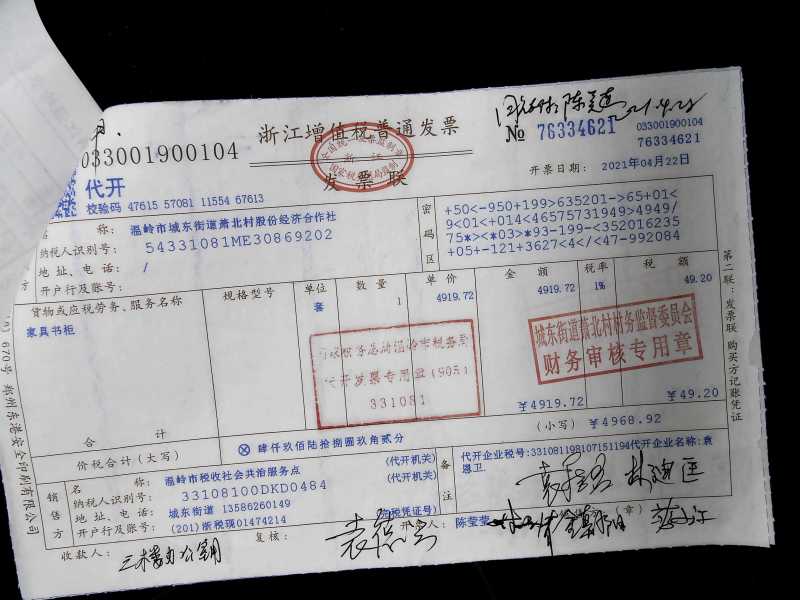 浙江增值税普通发票
发票联
033001900104
№ 76334621
033001900104
76334621
代开
校验码 47615 57081 11554 67613
开票日期: 2021年04月22日
名 称: 温岭市城东街道萧北村股份经济合作社
纳税人识别号: 54331081ME30869202
地址、电话: /
开户行及账号:
密码区
+50<-950+199>635201->65+01<
9<01<+014<46575731949>4949/
75*><*03>*93-199-<352016235
+05+-121+3627<4</<47-992084
货物或应税劳务、服务名称 规格型号 单位 数量 单价 金额 税率 税额
家具书柜 套 1 4919.72 4919.72 1% 49.20
城东街道萧北村财务监督委员会
财务审核专用章
代开发票专用章(905)
331081
合计 ¥4919.72 ¥49.20
价税合计(大写) ⊗肆仟玖佰陆拾捌圆玖角贰分 (小写) ¥4968.92
销售方
名 称: 温岭市税收社会共治服务点 (代开机关)
纳税人识别号: 33108100DKD0484 (代开机关)
地址、电话: 城东街道 13586260149
开户行及账号: (201)浙税现01474214 (完税凭证号)
备注
代开企业税号:331081198107151194代开企业名称:袁
恩卫
收款人: 三楼办公用
复核:
开票人: 陈莹莹
(章)
第二联:发票联 购买方记账凭证
670号 郑州东港安全印刷有限公司